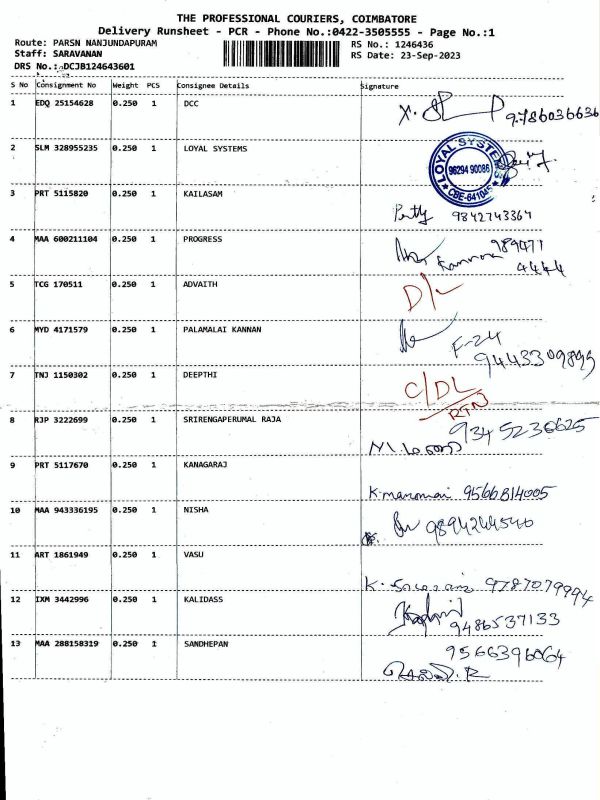 THE PROFESSIONAL COURIERS, COIMBATORE
Delivery Runsheet - PCR - Phone No.:0422-3505555 - Page No.:1
Route: PARSN NANJUNDAPURAM
RS No.: 1246436
Staff: SARAVANAN
RS Date: 23-Sep-2023
DRS No.: DCJB124643601
S No Consignment No Weight PCS Consignee Details Signature
1 EDQ 25154628 0.250 1 DCC 9786036636
2 SLM 328955235 0.250 1 LOYAL SYSTEMS
LOYAL SYSTEMS 96294 90086 CBE-641045
3 PRT 5115820 0.250 1 KAILASAM
9842743367
4 MAA 600211104 0.250 1 PROGRESS 989471
4444
5 TCG 170511 0.250 1 ADVAITH
D/L
6 MYD 4171579 0.250 1 PALAMALAI KANNAN F-24
9443309895
7 TNJ 1150302 0.250 1 DEEPTHI
C/DL
RTN
8 RJP 3222699 0.250 1 SRIRENGAPERUMAL RAJA 9345236625
9 PRT 5117670 0.250 1 KANAGARAJ
9566814005
10 MAA 943336195 0.250 1 NISHA
9894244540
11 ART 1861949 0.250 1 VASU
9787079994
12 IXM 3442996 0.250 1 KALIDASS
9486537133
13 MAA 288158319 0.250 1 SANDHEPAN 9566396064